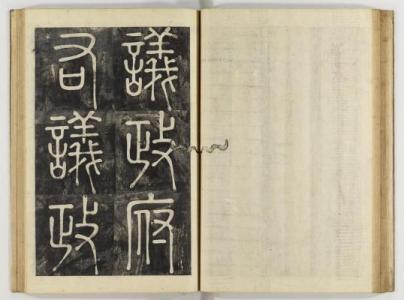 議政府
右議政